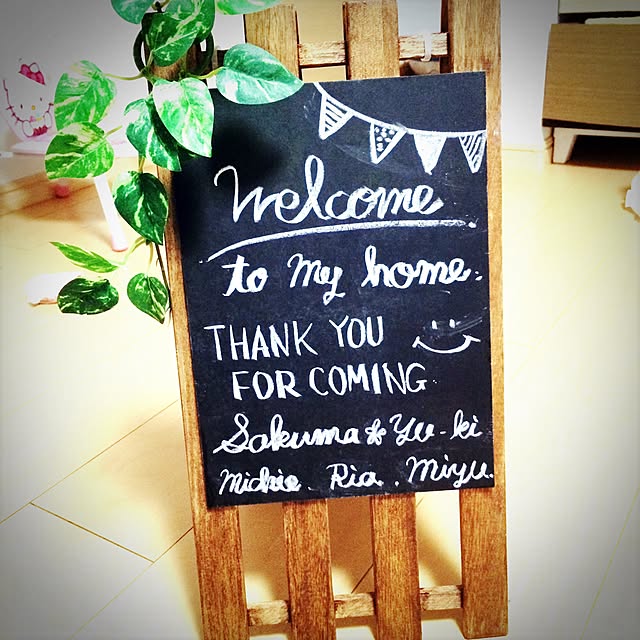 Welcome
to my home.
THANK YOU
FOR COMING
Sakuma * Yu-ki
Michie. Ria. Miyu.